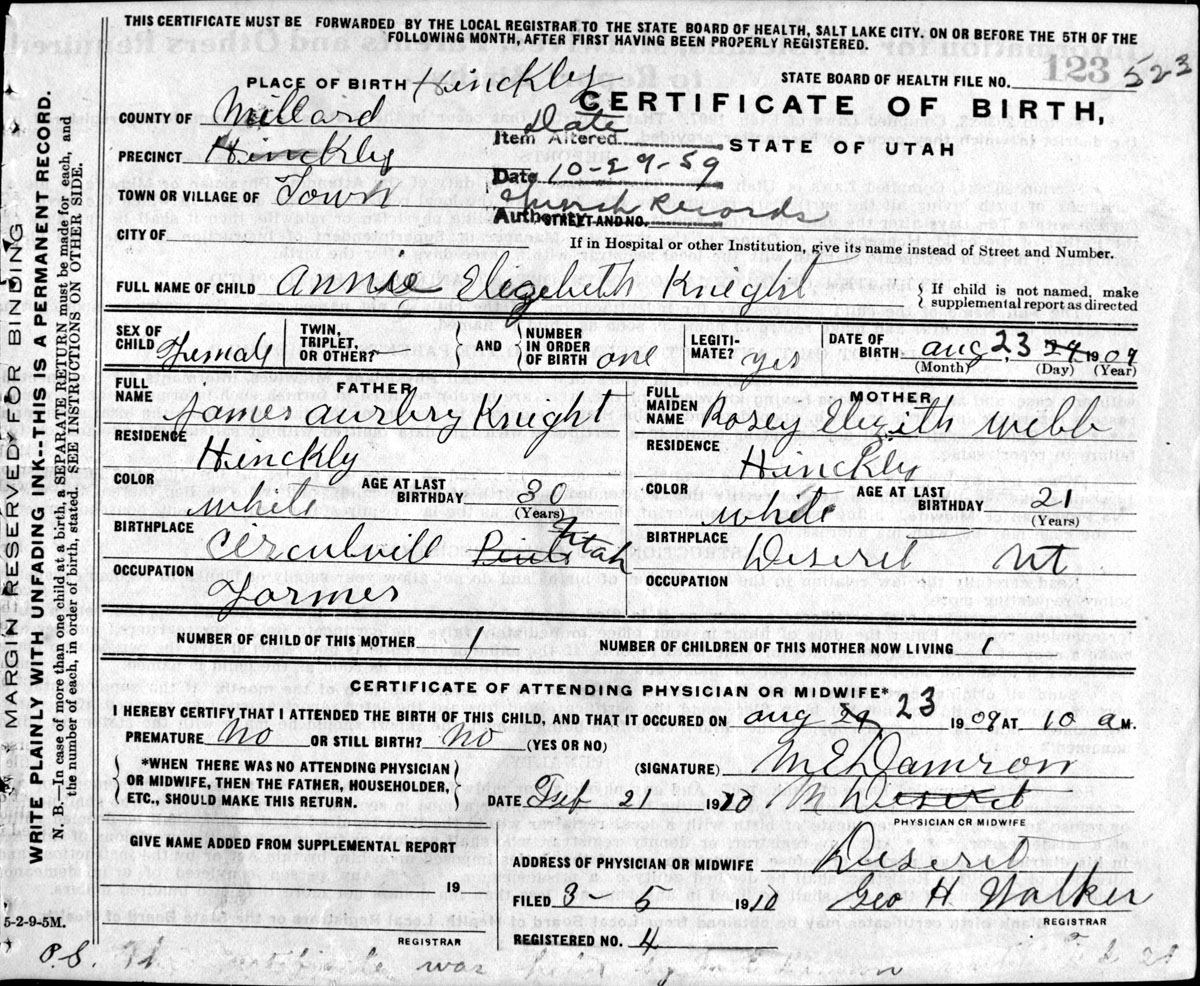 THIS CERTIFICATE MUST BE FORWARDED BY THE LOCAL REGISTRAR TO THE STATE BOARD OF HEALTH, SALT LAKE CITY. ON OR BEFORE THE 5TH OF THE
FOLLOWING MONTH, AFTER FIRST HAVING BEEN PROPERLY REGISTERED.
STATE BOARD OF HEALTH FILE NO. 123 523
PLACE OF BIRTH Hinckly
CERTIFICATE OF BIRTH,
COUNTY OF Millard
Item Altered Date
STATE OF UTAH
PRECINCT Hinckly
Date 10-29-59
TOWN OR VILLAGE OF Town
Authority Church Records
STREET AND NO.
CITY OF
If in Hospital or other Institution, give its name instead of Street and Number.
FULL NAME OF CHILD Annie Elezebeth Knight
{ If child is not named, make
supplemental report as directed
SEX OF CHILD Female
TWIN, TRIPLET, OR OTHER?
AND
NUMBER IN ORDER OF BIRTH one
LEGITIMATE? yes
DATE OF BIRTH Aug 23 24 1909
(Month) (Day) (Year)
FATHER
FULL NAME James Awbry Knight
RESIDENCE Hinckly
COLOR White
AGE AT LAST BIRTHDAY 30
(Years)
BIRTHPLACE Circulvill Piute Utah
OCCUPATION Farmer
MOTHER
FULL MAIDEN NAME Rosey Elezith Webb
RESIDENCE Hinckly
COLOR White
AGE AT LAST BIRTHDAY 21
(Years)
BIRTHPLACE Deseret Ut
OCCUPATION
NUMBER OF CHILD OF THIS MOTHER 1
NUMBER OF CHILDREN OF THIS MOTHER NOW LIVING 1
CERTIFICATE OF ATTENDING PHYSICIAN OR MIDWIFE*
I HEREBY CERTIFY THAT I ATTENDED THE BIRTH OF THIS CHILD, AND THAT IT OCCURED ON Aug 24 23 1909 AT 10 A M.
PREMATURE No OR STILL BIRTH? No (YES OR NO)
*WHEN THERE WAS NO ATTENDING PHYSICIAN
OR MIDWIFE, THEN THE FATHER, HOUSEHOLDER,
ETC., SHOULD MAKE THIS RETURN.
(SIGNATURE) M E Damron
DATE Feb 21 1910
Deseret
PHYSICIAN OR MIDWIFE
GIVE NAME ADDED FROM SUPPLEMENTAL REPORT
19
REGISTRAR
ADDRESS OF PHYSICIAN OR MIDWIFE Deseret
FILED 3-5 1910 Geo H. Walker
REGISTRAR
REGISTERED NO. 4
5-2-9-5M.
P.S. This certificate was
MARGIN RESERVED FOR BINDING
WRITE PLAINLY WITH UNFADING INK--THIS IS A PERMANENT RECORD.
N. B.—In case of more than one child at a birth, a SEPARATE RETURN must be made for each, and
the number of each, in order of birth, stated. SEE INSTRUCTIONS ON OTHER SIDE.